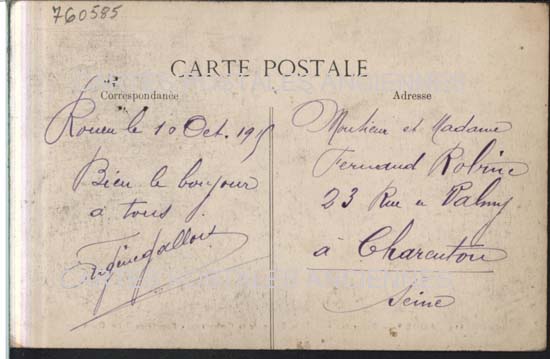 760585
CARTE POSTALE
Correspondance
Adresse
Rouen le 10 Oct. 19
Bien le bonjour
à tous.
Monsieur et Madame
Fernand Robine
23 Rue de Valmy
à Charenton
Seine